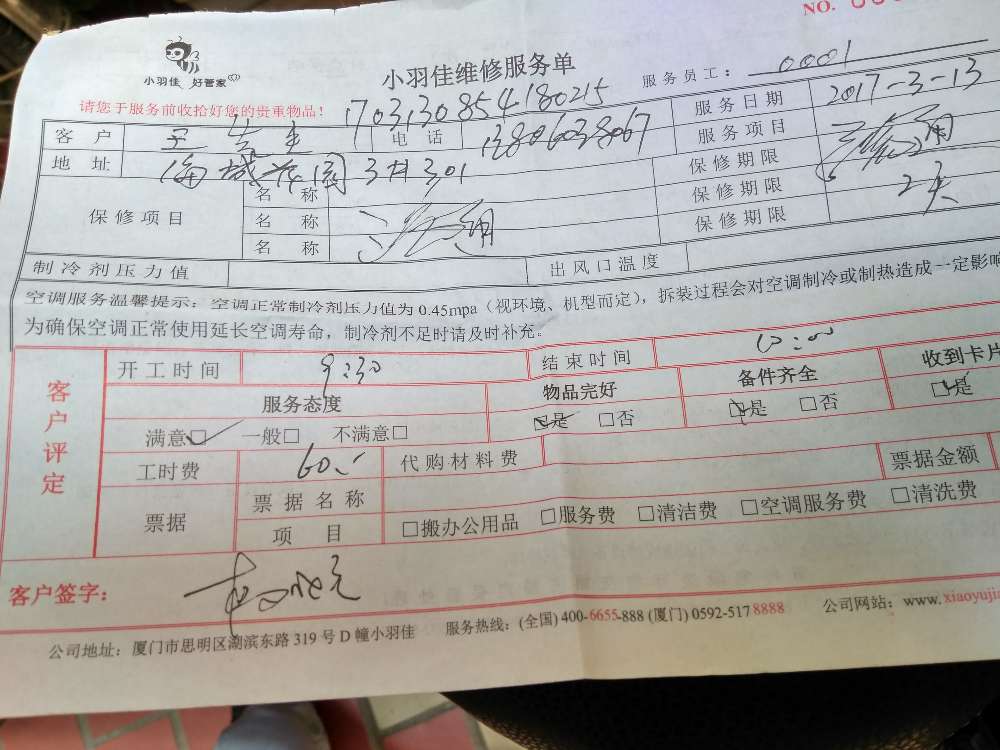 NO.
小羽佳 好管家
小羽佳维修服务单
服务员工： 0001
请您于服务前收拾好您的贵重物品！ 1703130854180215
服务日期 2017-3-13
客户 先生 电话 13806038067 服务项目
地址 海城花园3#301 保修期限
保修项目 名称 保修期限
名称 保修期限 2天
名称
制冷剂压力值 出风口温度
空调服务温馨提示：空调正常制冷剂压力值为 0.45mpa（视环境、机型而定），拆装过程会对空调制冷或制热造成一定影响
为确保空调正常使用延长空调寿命，制冷剂不足时请及时补充。
客户评定
开工时间 9:30 结束时间 10:00
服务态度 物品完好 备件齐全 收到卡片
满意□ 一般□ 不满意□ □是 □否 □是 □否 □是
工时费 60 代购材料费
票据 票据名称 票据金额
项目 □搬办公用品 □服务费 □清洁费 □空调服务费 □清洗费
客户签字：
公司地址：厦门市思明区湖滨东路 319 号 D 幢小羽佳 服务热线：(全国) 400-6655-888 (厦门) 0592-517 8888 公司网站：www.xiaoyujia